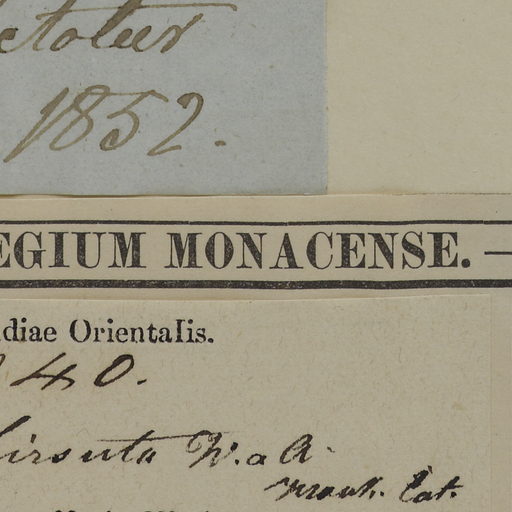 ctober
1852.
EGIUM MONACENSE. —
diae Orientalis.
40.
hirsuta W. a A.
Cat.